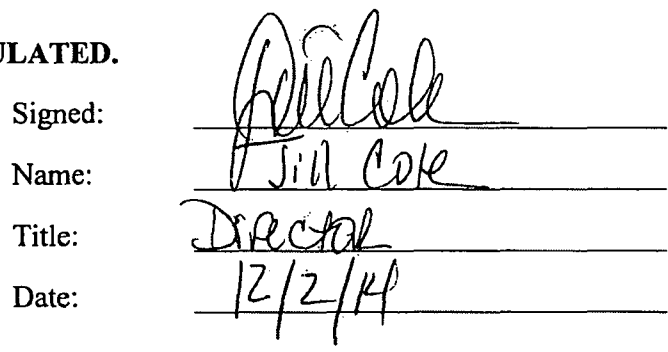 ULATED.
Signed: Jill Cole
Name: Jill Cole
Title: Director
Date: 12/2/14